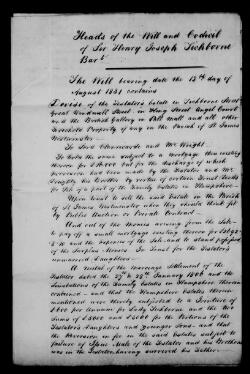 Heads of the Will and Codicil
of Sir Henry Joseph Tichborne
Bart
The Will bearing date the 13th day of
August 1831 contains
Devise of the Testators Estate in Tichborne Street
Great Windmill Street in King Street Angel Court
and the British Gallery in Pall Mall and all other
Freehold Property if any in the Parish of St James
Westminster
To Lord Clanricarde and Mr Wright
To hold the same subject to a Mortgage then existing
thereon for for the discharge of which
provision had been made by the Testator and Mr
by a certain Trust Deed
for Sale of a part of the Family Estates in Hampshire
Upon trust to sell the said Estate in the Parish
of St James Westminster when they should think fit
by Public Auction or Private Contract
And out of the monies arising from the Sale
to pay off a small mortgage existing thereon for
and the expenses of the Sale and to stand possessed
of the Surplus Monies In Trust for the Testators
unmarried Daughters
A recital of the marriage Settlement of the
Testator dated the January 1806 and the
limitations of the Family Estates in Hampshire therein
contained and that the Hampshire Estates therein
mentioned were thereby subjected to a Jointure of
per annum for Lady Tichborne and the two
Sums of and for the Portions of the
Testators Daughters and younger Sons and that
the Reversion in fee in the said Estates subject to
failure of Issue Male of the Testator and his Brothers
was in the Testator having survived his Father